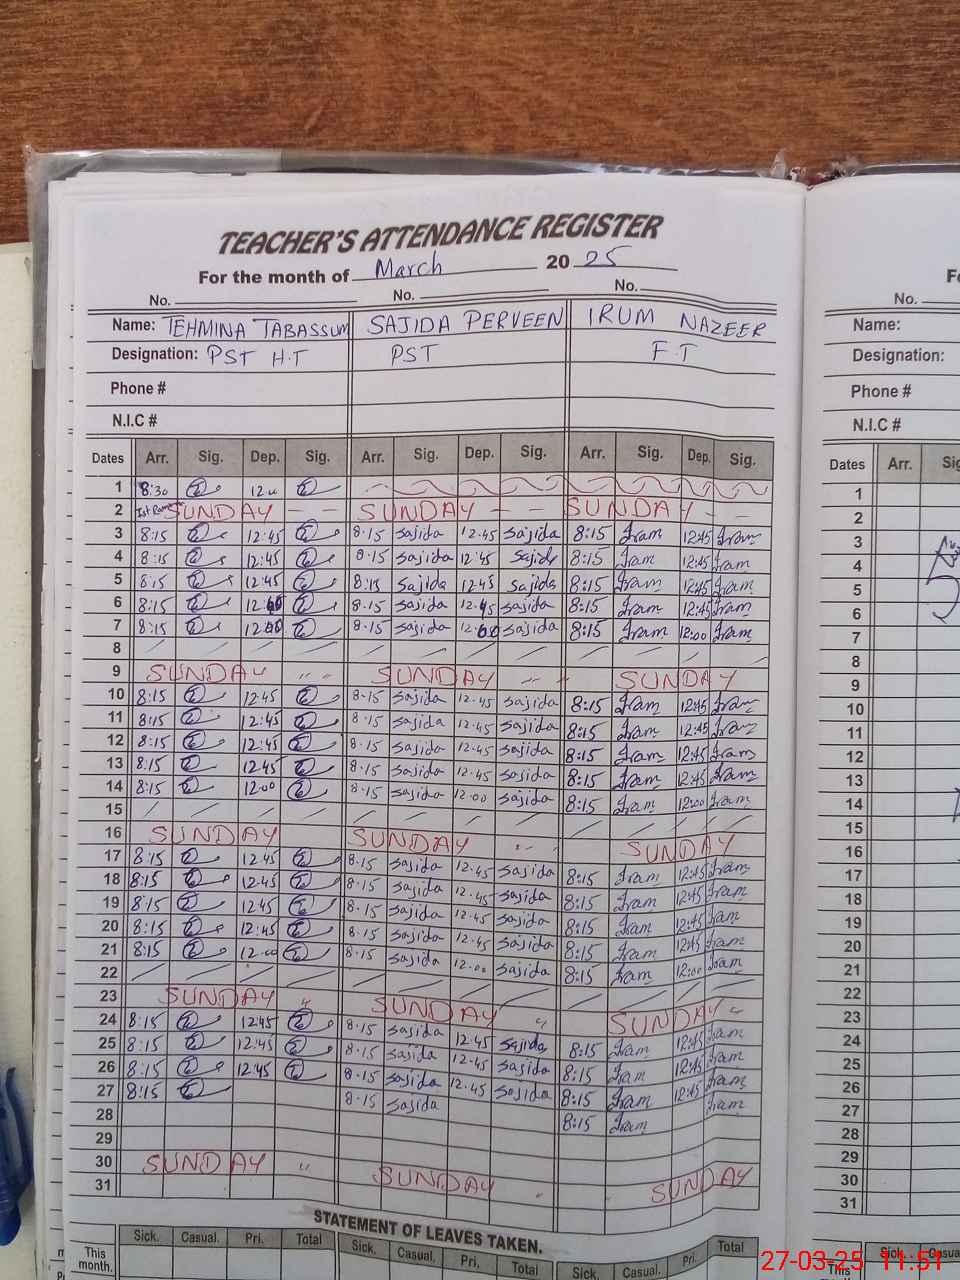 TEACHER'S ATTENDANCE REGISTER
For the month of March 20 25
No. No. No.
Name: TEHMINA TABASSUM SAJIDA PERVEEN IRUM NAZEER
Designation: PST H.T PST F.T
Phone #
N.I.C #
Dates Arr. Sig. Dep. Sig. Arr. Sig. Dep. Sig. Arr. Sig. Dep. Sig.
1 8:30 12
2 SUNDAY SUNDAY SUNDAY
3 8:15 12:45 8.15 Sajida 12.45 Sajida 8:15 Iram 12:45 Iram
4 8:15 12:45 8.15 Sajida 12.45 Sajida 8:15 Iram 12:45 Iram
5 8:15 12:45 8:15 Sajida 12.45 Sajida 8:15 Iram 12:45 Iram
6 8:15 12: 8.15 Sajida 12.45 Sajida 8:15 Iram 12:45 Iram
7 8:15 12:00 8.15 Sajida 12:00 Sajida 8:15 Iram 12:00 Iram
8
9 SUNDAY SUNDAY SUNDAY
10 8:15 12:45 8.15 Sajida 12.45 Sajida 8:15 Iram 12:45 Iram
11 8:15 12:45 8.15 Sajida 12.45 Sajida 8:15 Iram 12:45 Iram
12 8:15 12:45 8.15 Sajida 12.45 Sajida 8:15 Iram 12:45 Iram
13 8:15 12:45 8.15 Sajida 12.45 Sajida 8:15 Iram 12:45 Iram
14 8:15 12:00 8.15 Sajida 12.00 Sajida 8:15 Iram 12:00 Iram
15
16 SUNDAY SUNDAY SUNDAY
17 8:15 12:45 8.15 Sajida 12.45 Sajida 8:15 Iram 12:45 Iram
18 8:15 12:45 8.15 Sajida 12.45 Sajida 8:15 Iram 12:45 Iram
19 8:15 12:45 8.15 Sajida 12.45 Sajida 8:15 Iram 12:45 Iram
20 8:15 12:45 8.15 Sajida 12.45 Sajida 8:15 Iram 12:45 Iram
21 8:15 12:00 8.15 Sajida 12.00 Sajida 8:15 Iram 12:00 Iram
22
23 SUNDAY SUNDAY SUNDAY
24 8:15 12:45 8.15 Sajida 12.45 Sajida 8:15 Iram 12:45 Iram
25 8:15 12:45 8.15 Sajida 12.45 Sajida 8:15 Iram 12:45 Iram
26 8:15 12:45 8.15 Sajida 12.45 Sajida 8:15 Iram 12:45 Iram
27 8:15 8.15 Sajida 8:15 Iram
28
29
30 SUNDAY SUNDAY SUNDAY
31
STATEMENT OF LEAVES TAKEN.
Sick. Casual. Pri. Total Sick. Casual. Pri. Total Sick. Casual. Pri. Total
This month.
No.
Name:
Designation:
Phone #
N.I.C #
Dates Arr.
1
2
3
4
5
6
7
8
9
10
11
12
13
14
15
16
17
18
19
20
21
22
23
24
25
26
27
28
29
30
31
Sick.
This
27-03-25 11:51